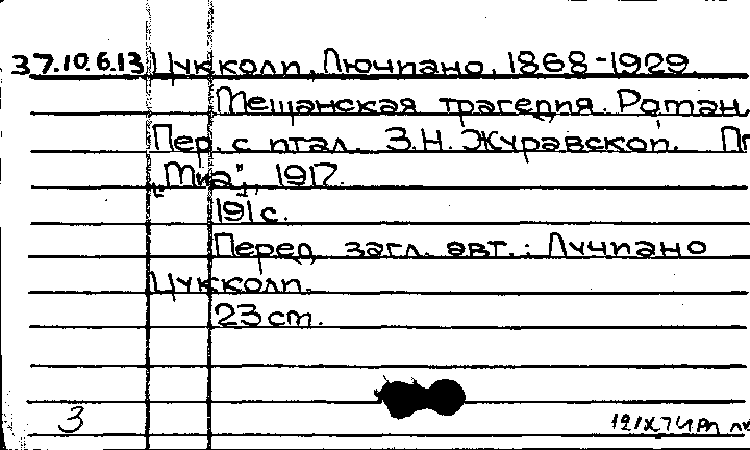 37.10.6.13 Цукколи, Лючиано, 1868-1929.
Мещанская трагедия. Роман.
Пер. с итал. З.Н. Журавской. Пг
„Миа", 1917.
191 с.
Перед загл. авт.: Лучиано
Цукколи.
23 cm.
3